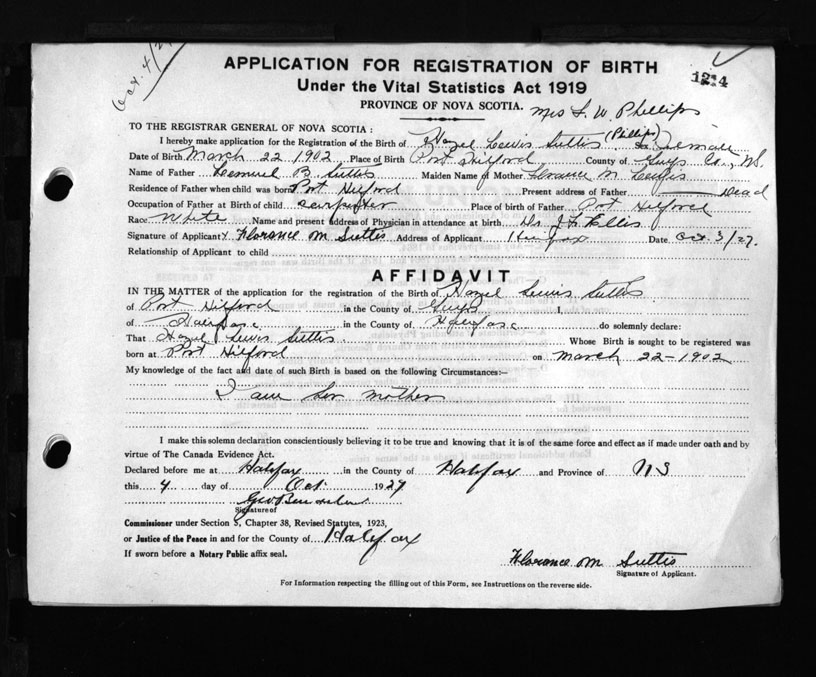 Oct. 4/27
APPLICATION FOR REGISTRATION OF BIRTH
1214
Under the Vital Statistics Act 1919
PROVINCE OF NOVA SCOTIA.
Mrs W. Phillips
TO THE REGISTRAR GENERAL OF NOVA SCOTIA:
I hereby make application for the Registration of the Birth of Hazel Lewis Suttis (Phillips) Sex Female
Date of Birth March 22 1902 Place of Birth Port Hilford County of Guys Co., N.S.
Name of Father Lemuel B. Suttis Maiden Name of Mother Florance M Lewis
Residence of Father when child was born Port Hilford Present address of Father Dead
Occupation of Father at Birth of child carpenter Place of birth of Father Port Hilford
Race White Name and present address of Physician in attendance at birth Dr J. Ellis
Signature of Applicant x Florance M Suttis Address of Applicant Halifax Date Oct 3/27.
Relationship of Applicant to child
AFFIDAVIT
IN THE MATTER of the application for the registration of the Birth of Hazel Lewis Suttis
of Port Hilford in the County of Guys I,
of Halifax in the County of Halifax do solemnly declare:
That Hazel Lewis Suttis Whose Birth is sought to be registered was
born at Port Hilford on March 22-1902
My knowledge of the fact and date of such Birth is based on the following Circumstances:—
I am her mother
I make this solemn declaration conscientiously believing it to be true and knowing that it is of the same force and effect as if made under oath and by
virtue of The Canada Evidence Act.
Declared before me at Halifax in the County of Halifax and Province of NS
this 4 day of Oct. 1927
Signature of
Commissioner under Section 5, Chapter 38, Revised Statutes, 1923,
or Justice of the Peace in and for the County of Halifax
If sworn before a Notary Public affix seal.
Florance M Suttis
Signature of Applicant.
For Information respecting the filling out of this Form, see Instructions on the reverse side.